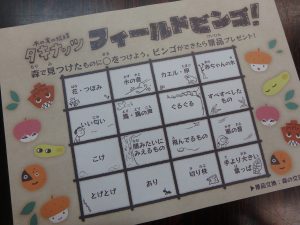 木の実の妖精
タネナッツ
フィールドビンゴ!
森で見つけたものに○をつけよう。ビンゴができたら景品プレゼント!
花・つぼみ
水の音
カエル・卵
赤ちゃんの木
いい匂い
鳥・鳥の声
ぐるぐる
すべすべした
もの
こけ
顔みたいに
みえるもの
飛んでるもの
風の音
とげとげ
あり
切り株
手より大きい
葉っぱ
▶景品交換:森の